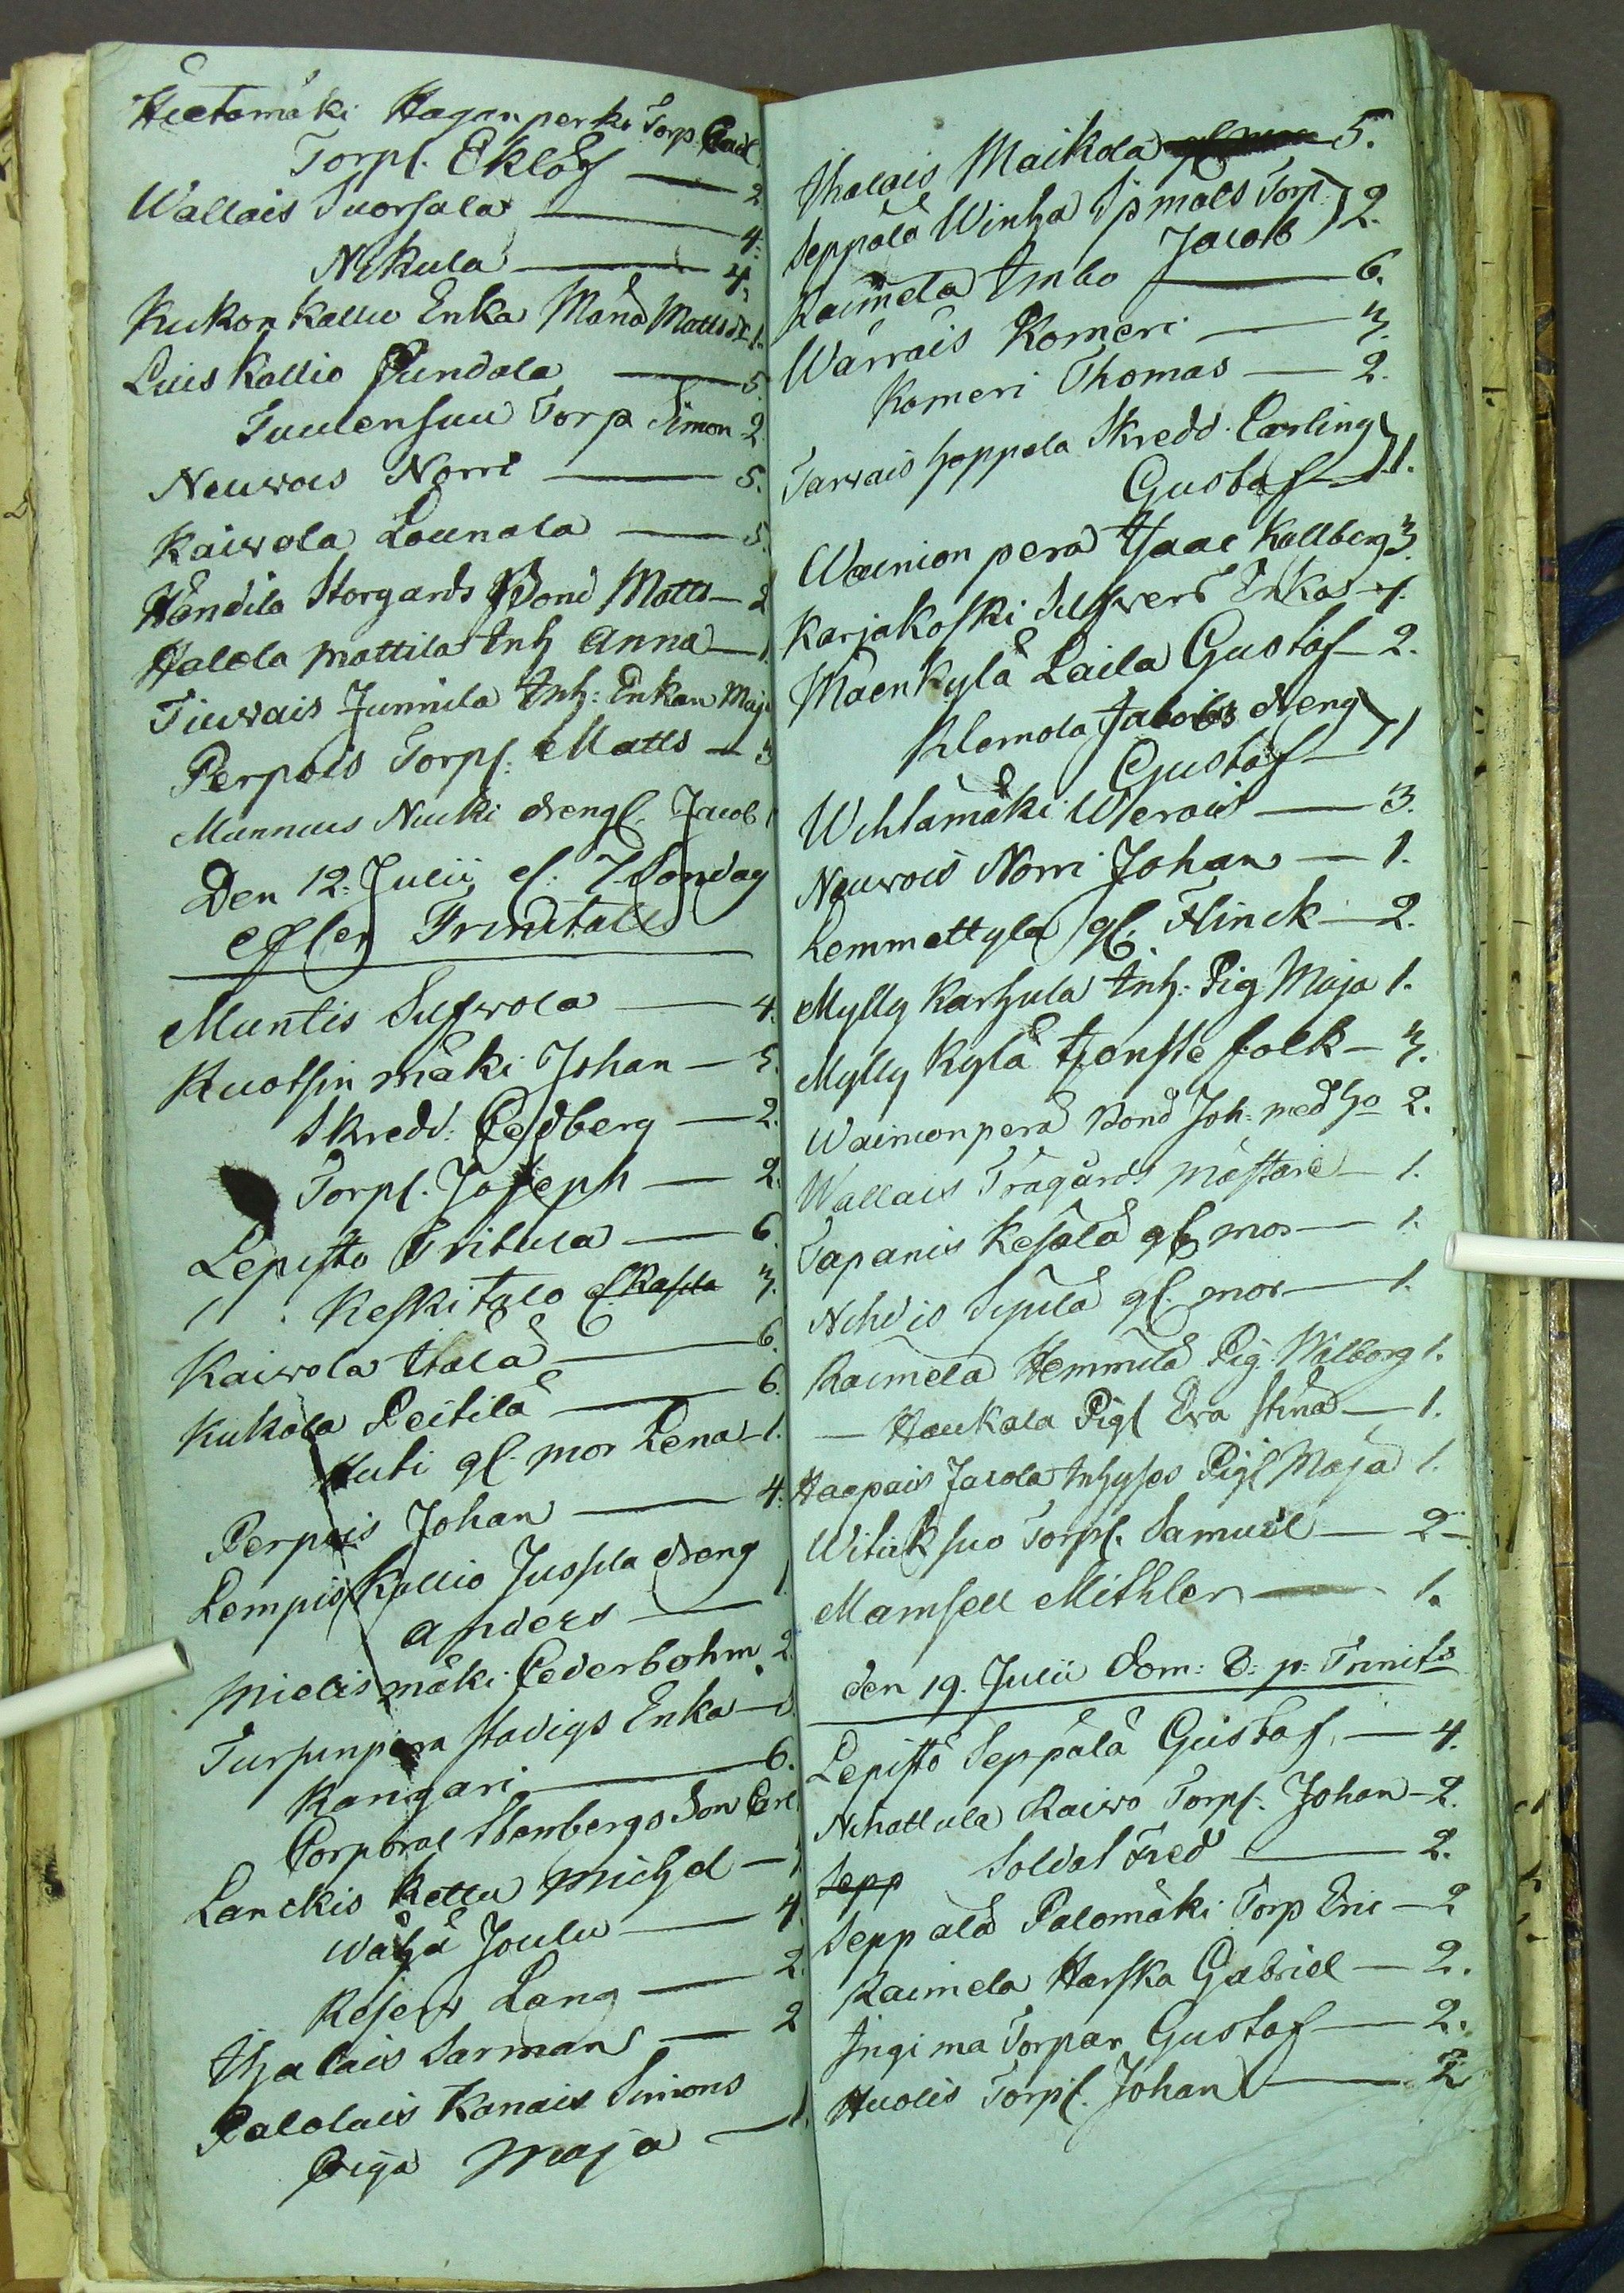 Hietamäki Haganperko Torp Carl
Torpf. Eklöf — 2
Wallais Suorsala — 4.
Nikula — 4.
Kukon Kallio Enka Månd Matts dr 1.
Luis Kallio Pundola — 5.
Tuulensuu Torp Simon 2
Neuwois Norri — 5.
Kaiwola Lounala — 5.
Händilä Storgårds Bond Matts — 2
Halola Mattila Inh Anna — 1.
Tiuwais Junnila Inh: Enkan Maja
Perpois Torpf: Matts — 3
Munnus Nucki drengf. Jacob 1
Den 12. Julii el. 7 Sondag
efter Trinitatis
Muntis Sufwola — 4.
Ruotsin mäki Johan — 5.
Skredd: Cedberg — 2.
Torpf. Joseph — 2.
Lepistö Fritula — 6.
11 . Keskitalo 3.
Kaiwola Isälä — 6.
Kukola Peitilä — 6.
Huti gl. mor Lena — 1.
Perpois Johan — 4.
Lempis Kallio Jussila dreng
Anders — 1
Mielismäki Cederbohm 2.
Tursunpera Stadigs Enka — 1.
Kangari — 6.
Corporal Stenbergs Son Carl
Lanckis Kettu Michel — 1
Wähä Joulu — 4.
Reserv Lang — 2.
Ihalais Sarman — 2
Palolais Kanais Simons
Piga Maja — 1.
Ihalais Maikola 5.
Seppälä Winha Spmåls Torp.
Jacob } 2.
Raimela Imbo — 6.
Wärräis Komeri — 3.
Komeri Thomas — 2.
Tarwais Hoppola Skredd. Carling
Gustaf } 1.
Wainion perä Isaac Kallberg 3.
Karjakoski Silfwers Enka — 1.
Mäenkylä Laila Gustaf — 2.
Klemola Jacobs dreng
Gustaf } 1
Wihlamäki Werais — 3.
Neuwois Norri Johan — 1.
Lemmettylä gl. Flinck — 2.
Mylly Karhula Inh: Pig Maja 1.
Mylly Kylä tjenste folk — 3.
Wainionperä Bond Joh: med ho 2.
Wallais Trägårds mästare — 1.
Tapanis Kesälä gl. mor — 1.
Nihdis Sipilä gl. mor — 1.
Raimela Hemmilä Pig. Walborg 1.
— Haukala Pigf Eva Stina — 1.
Haapais Jacola Inhyses Pigf Maja 1.
Wituksuo Torpf. Samuel — 2.
Mamsell Mithler — 1.
den 19. Julii Dom: 8: p: Trinits
Lepistö Seppälä Gustaf — 4.
Nihattula Raiwo Torpf: Johan — 2.
Sepp Soldat Fred — 2.
Seppälä Palomäki Torp Eric — 2
Raimela Harska Gabriel — 2.
Ingi ma Torpar Gustaf — 2.
Huolis Torpf. Johan — 2